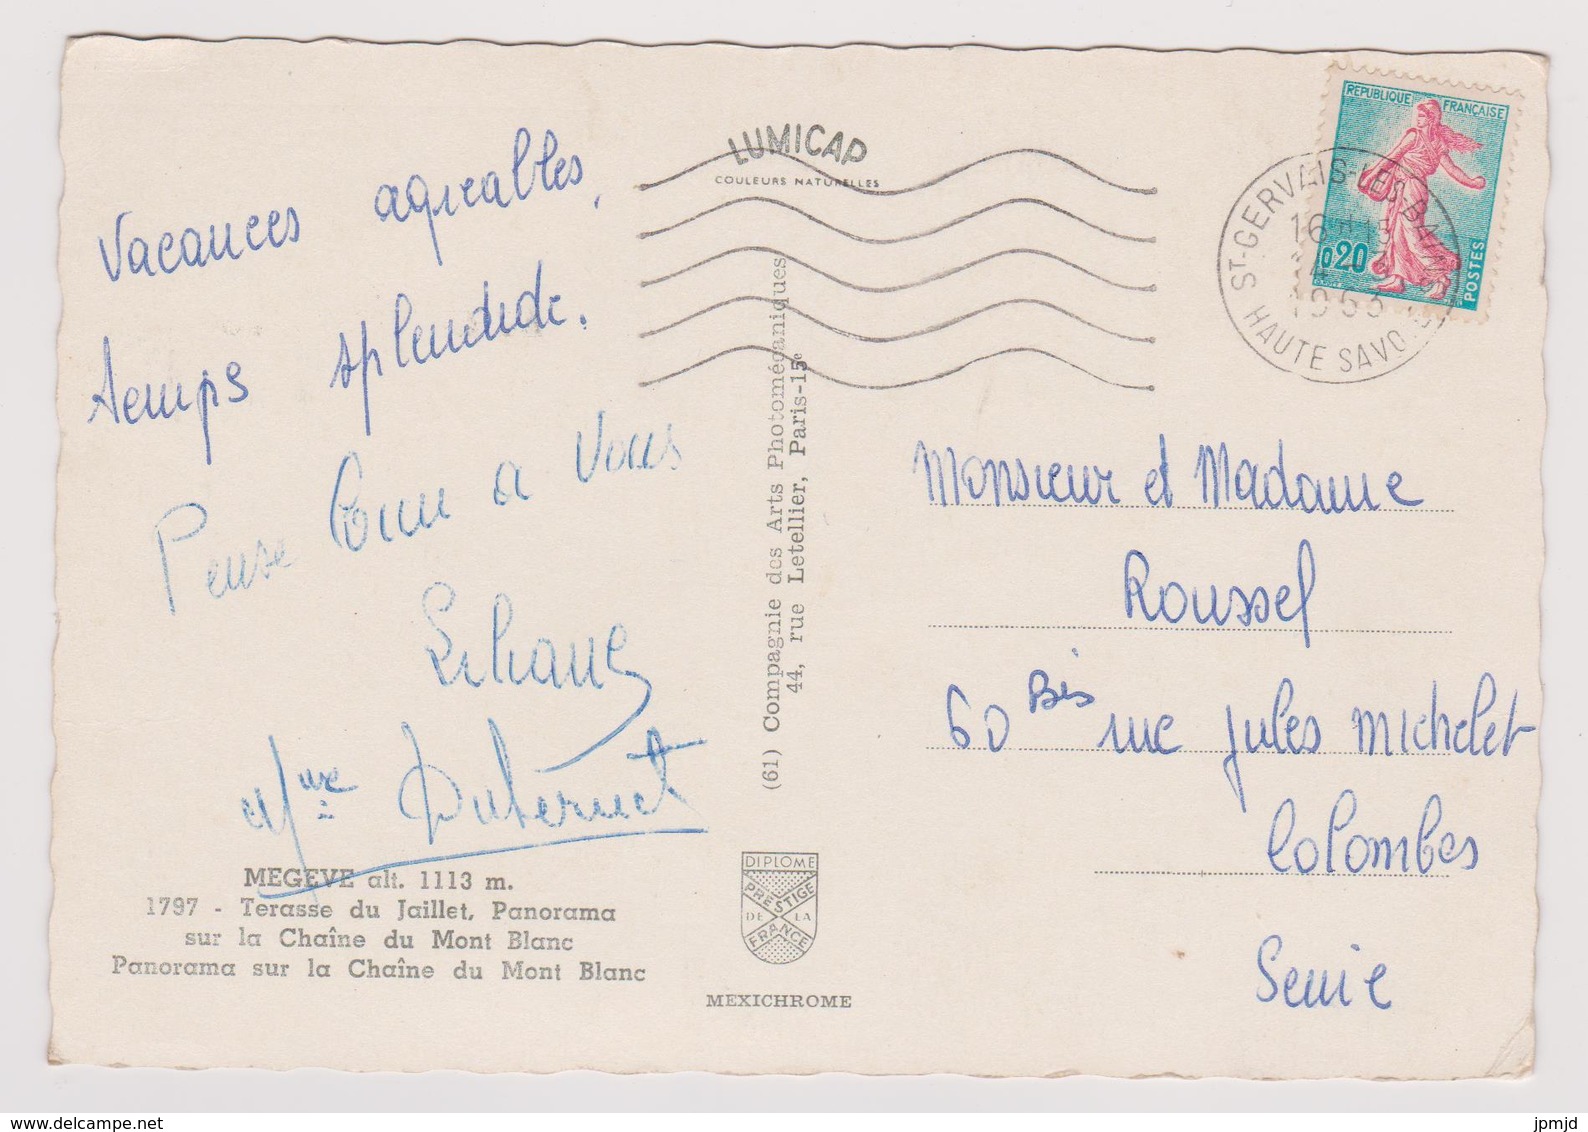 Vacances agréables,
temps splendide.
Pense bien à vous
Liliane
Mme
MEGEVE alt. 1113 m.
1797 - Terasse du Jaillet, Panorama
sur la Chaîne du Mont Blanc
Panorama sur la Chaîne du Mont Blanc
LUMICAP
COULEURS NATURELLES
(61) Compagnie des Arts Photomécaniques
44, rue Letellier, Paris-15e
DIPLOME
PRESTIGE
DE LA
FRANCE
MEXICHROME
REPUBLIQUE FRANÇAISE
0,20
POSTES
ST-GERVAIS-LES-BAINS
16H15
1963
HAUTE SAVOIE
Monsieur et Madame
Roussel
60 Bis rue Jules Michelet
Colombes
Seine
delcampe.net
jpmjd